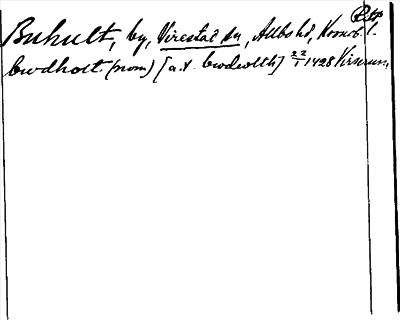 Buhult, by, Virestad sn, Allbo hd, Kronob. l.
bwdholt (nom) [a.v. bwdwlth] 22/1 1428 Virserum